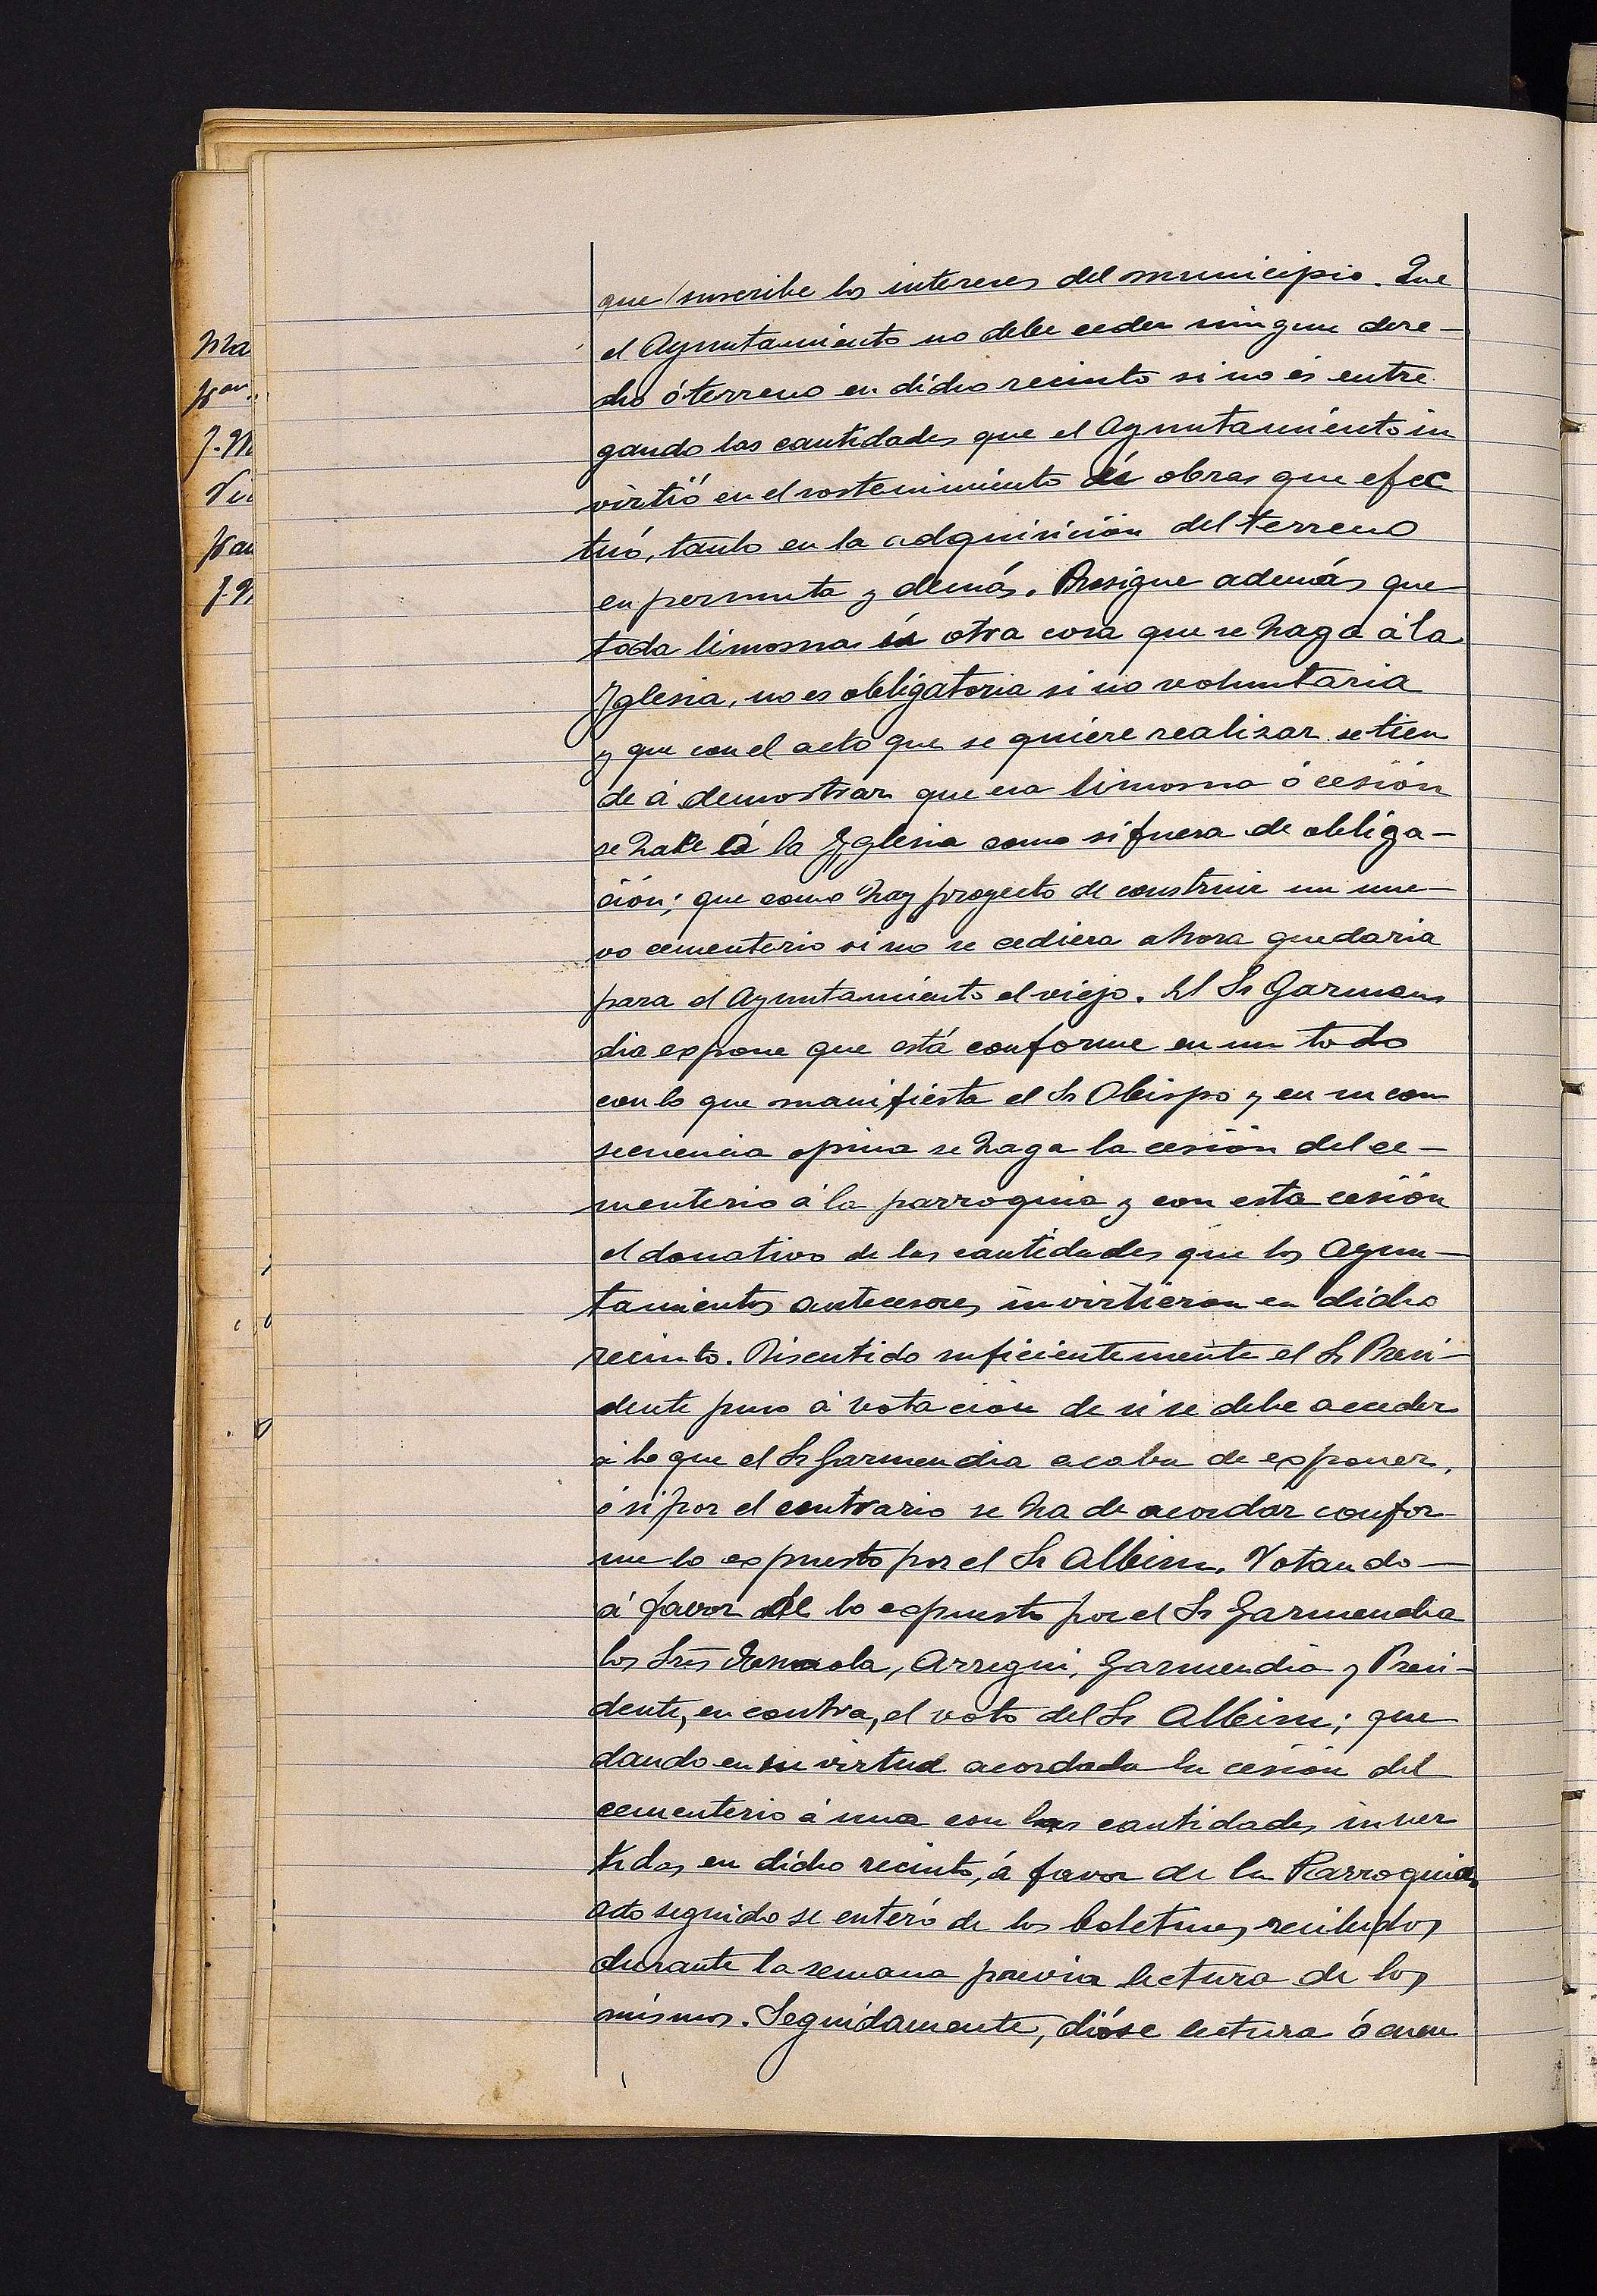 que suscribe los intereses del municipio. Que
el Ayuntamiento no debe ceder ningun dere-
cho ó terreno en dicho recinto si no es entre
gando las cantidades que el Ayuntamiento in
virtió en el sostenimiento de obras que efec
tuó, tanto en la adquisición del terreno
en permuta y demás. Prosigue además que
toda limosna ú otra cosa que se haga á la
Yglesia, no es obligatoria si no voluntaria
y que con el acto que se quiere realisar se tien
de á demostrar que esa limosna ó cesión
se hace á la Yglesia como si fuera de obliga-
ción; que como hay proyecto de construir un nue-
vo cementerio si no se cediera ahora quedaria
para el Ayuntamiento el viejo. El Sr Garmen
dia expone que está conforme en un todo
con lo que manifiesta el Sr Obispo y en su con
secuencia opina se haga la cesión del ce-
menterio á la parroquia y con esta cesión
el donativo de las cantidades que los Ayun-
tamientos antecesores invirtieron en dicho
recinto. Discutido suficientemente el Sr Presi-
dente puso á votación de si se debe acceder
á lo que el Sr Garmendia acaba de exponer,
ó si por el contrario se ha de acordar confor-
me lo expuesto por el Sr Albisu. Votando-
á favor de lo expuesto por el Sr Garmendia
los Sres Arregui, Garmendia y Presi-
dente, en contra, el voto del Sr Albisu; que
dando en su virtud acordada la cesión del
cementerio á una con las cantidades inver
tidas en dicho recinto, á favor de la Parroquia,
Acto seguido se enteró de los boletines recibidos
durante la semana previa lectura de los
mismos. Seguidamente, dióse lectura ó cuen
Ma
J. M
J. M